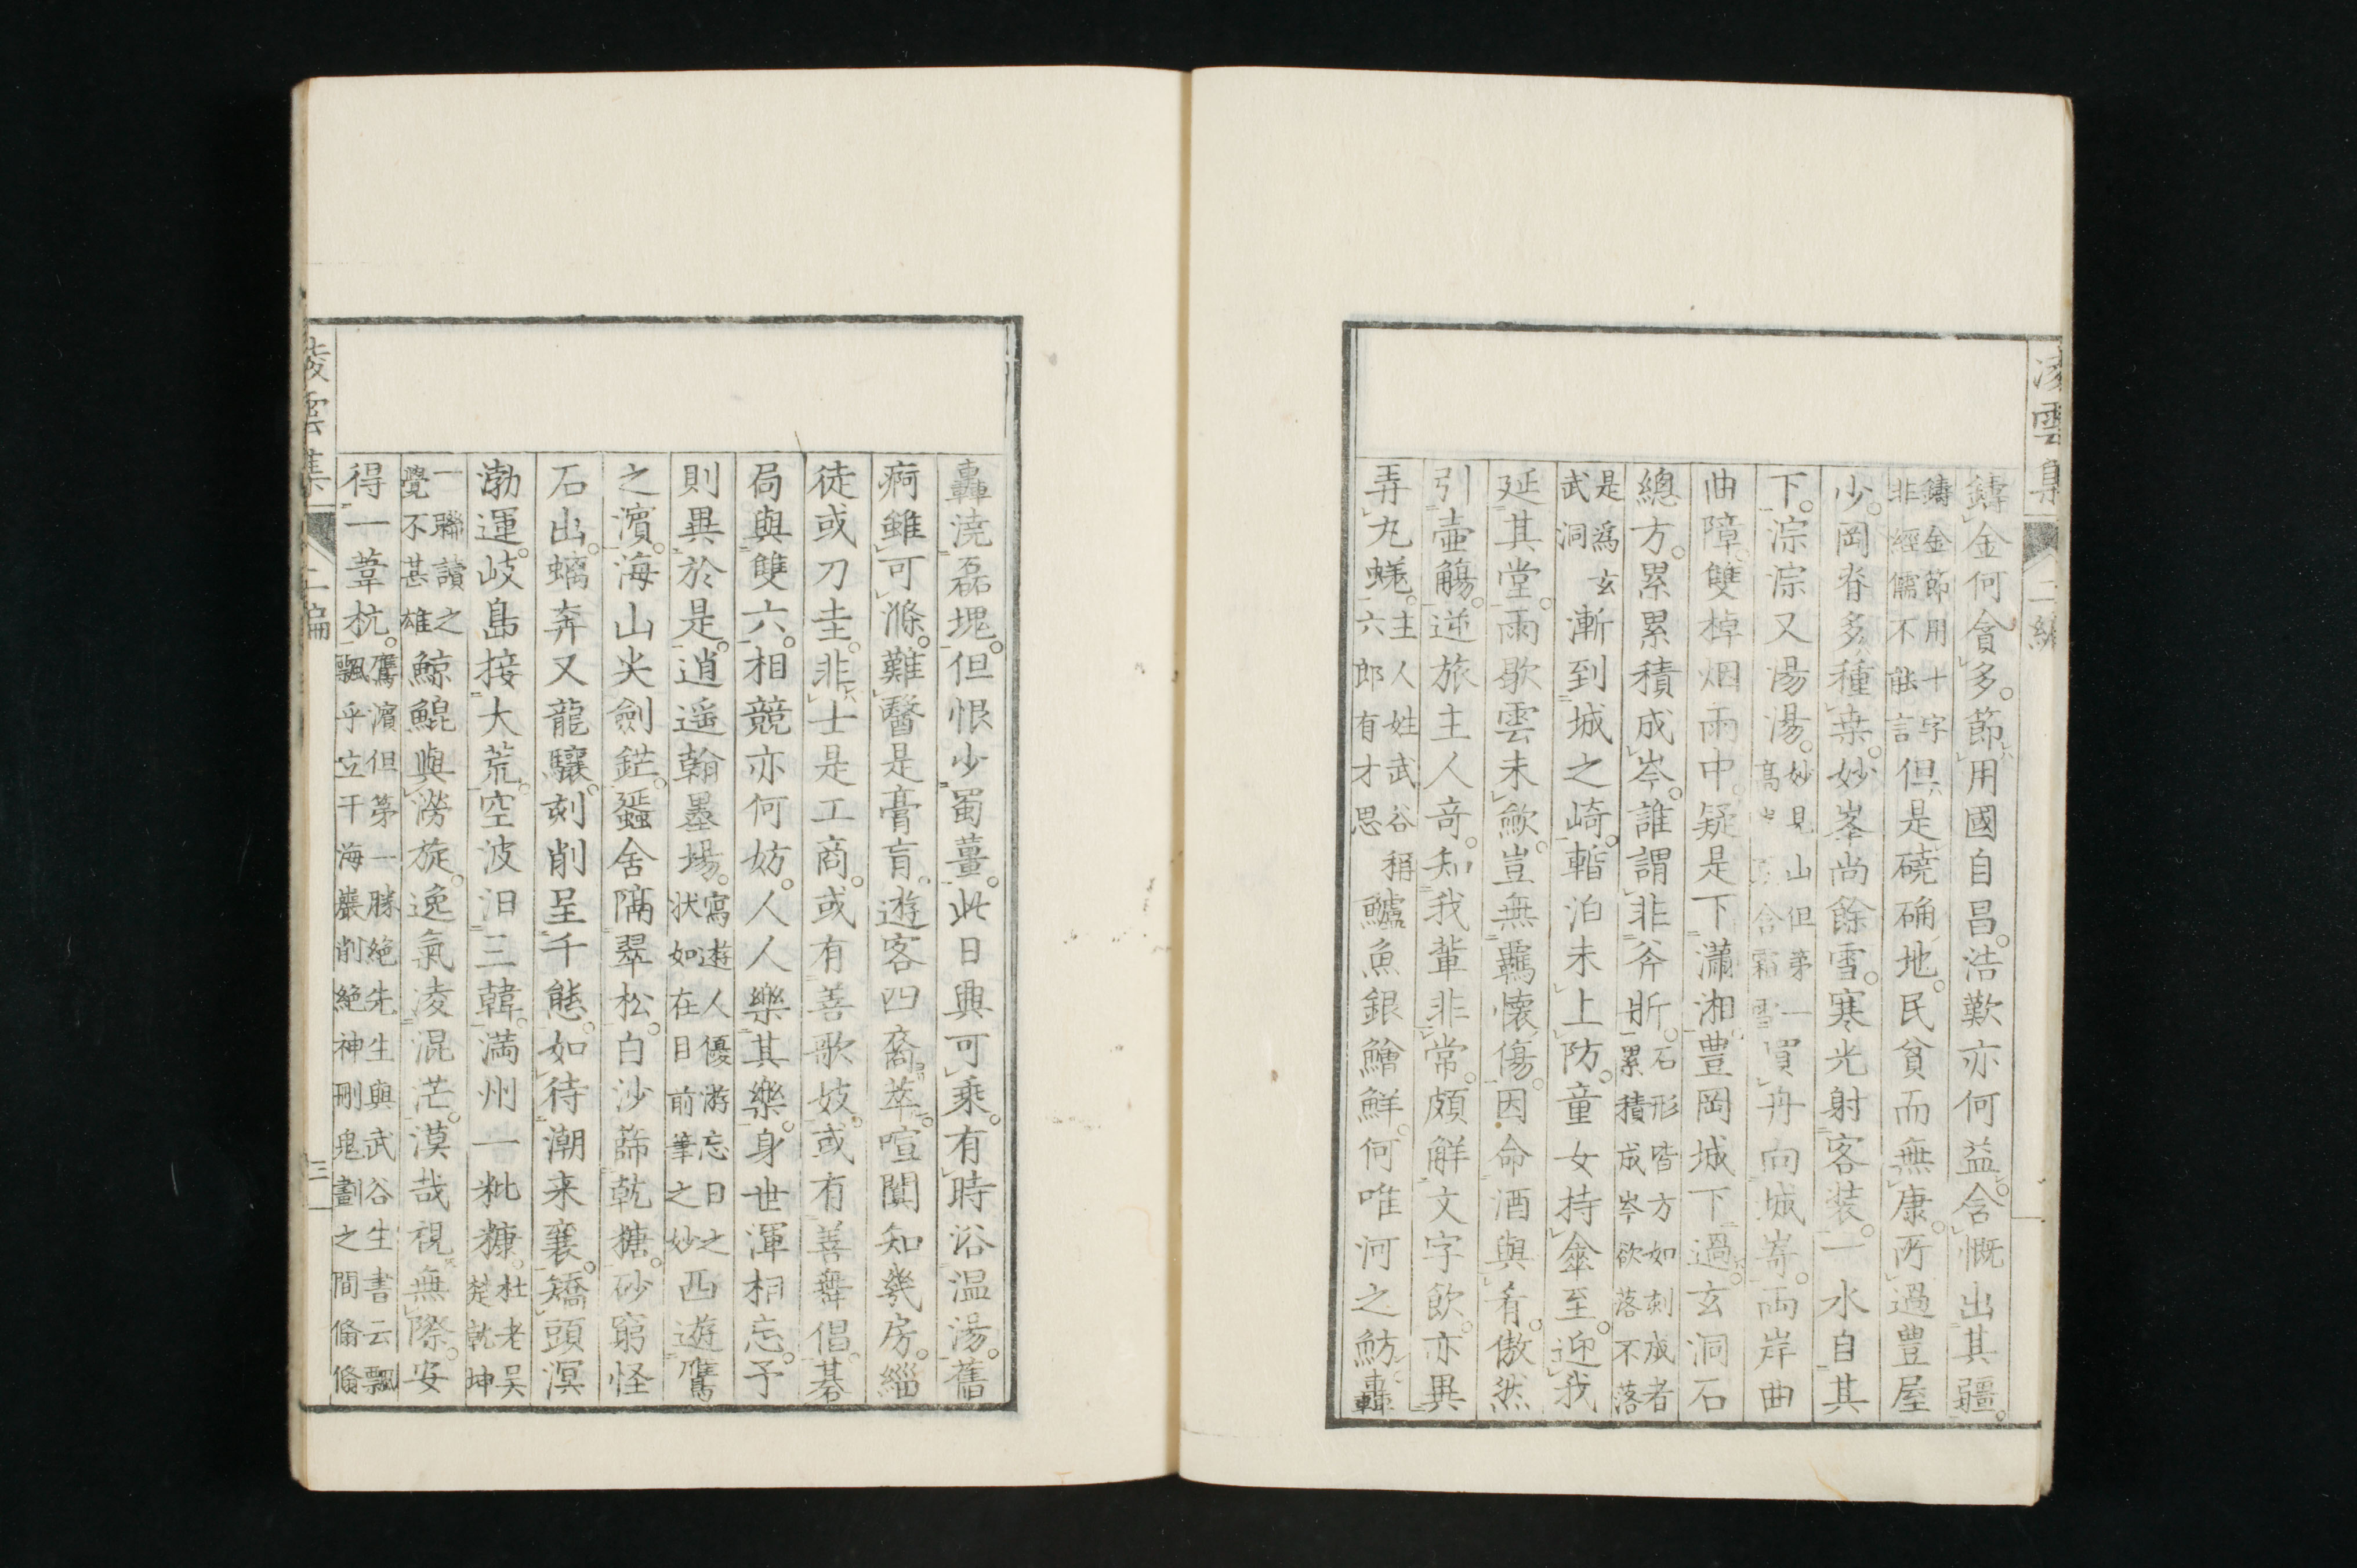 凌雲集 二編
鑄金何會多。節用國自昌。浩歎亦何益。含慨出其疆。
鑄金節用十字非經儒不能言 但是磽确地。民貧而無康。所過豊屋
少。岡脊多種桒。妙峯尚餘雪。寒光射客装。一水自其
下。淙淙又湯湯。妙見山但第一高 含霜雪 買舟向城嵜。両岸岸曲
曲障。雙棹烟雨中。疑是下瀟湘。豊岡城下過。玄洞石
總方。累累積成岑。誰謂非斧斨。石形皆方如刻成者累積成岑欲落不落
是爲玄武洞 漸到城之崎。暫泊未上防。童女持傘至。迎我
延其堂。雨歇雲未歛。豈無羈懷傷。因命酒與肴。傲然
引壺觴。逆旅主人奇。知我輩非常。頗觧文字飮。亦異
弄丸蜣。主人姓武谷稱六郎有才思 鱸魚銀鱠鮮。何唯河之魴。轟
轟澆磊塊。但恨少蜀薑。此日興可乗。有時浴温湯。舊
痾雖可滌。難醫是膏肓。遊客四裔萃。喧闐知幾房。緇
徒或刀圭。非士是工商。或有善歌妓。或有善舞倡。碁
局與雙六。相競亦何妨。人人樂其樂。身世渾相忘。予
則異於是。逍遥翰墨場。寫遊人優游忘日之状如在目前筆之妙 西遊鷹
之濵。海山尖劍鋩。蜑舍隔翠松。白沙篩乾糖。砂窮怪
石出。螭奔又龍驤。刻削呈千態。如待潮来襄。矯頭溟
渤運。岐島接大荒。空波汨三韓。満州一粃糠。杜老吴楚乾坤
一聯讀之覺不甚雄 鯨鯤與澇旋。逸氣凌混茫。漠哉視無際。安
得一葦杭。鷹濵但第一勝絶先生與武谷生書云飄飄乎立于海巖削絶神刪鬼劃之間翛翛
凌雲集 二編 三